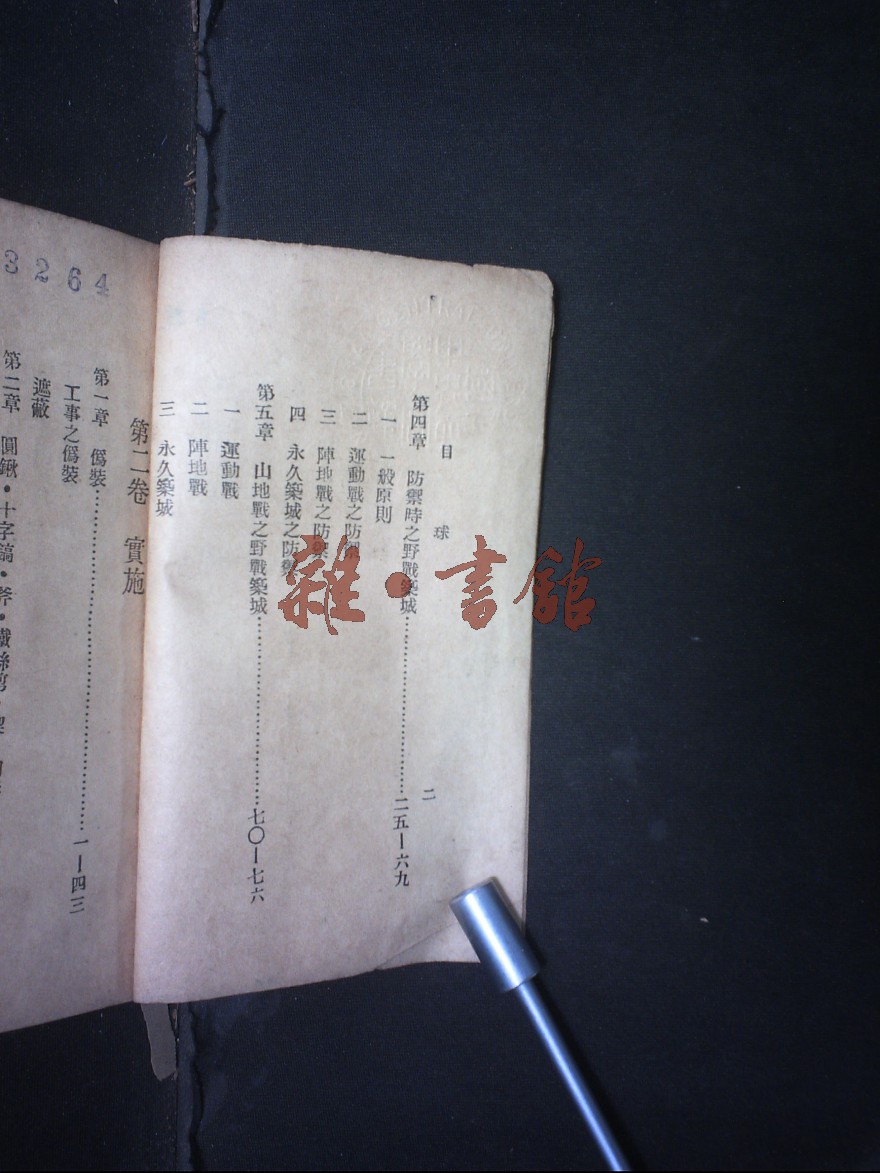 目　球
二
第四章　防禦時之野戰築城…………二五—六九
一　一般原則
二　運動戰之防禦
三　陣地戰之防禦
四　永久築城之防禦
第五章　山地戰之野戰築城…………七〇—七六
一　運動戰
二　陣地戰
三　永久築城
第二卷　實施
第一章　僞裝…………一—四三
工事之僞裝
遮蔽
第二章　圓鍬・十字鎬・斧・鐵絲剪・
3264
雜・書館